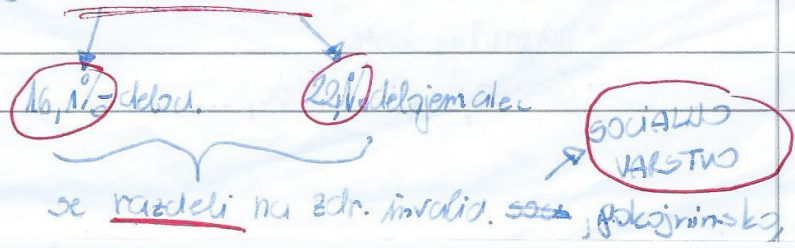 16,1% delod. 22,1% delojemalec
SOCIALNO
VARSTVO
se razdeli na zdr. invalid. sos, pokojninsko,